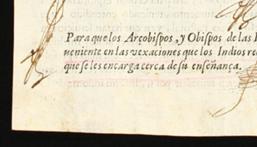 Para que los Arçobispos, y Obispos de las
ueniente en las vexaciones que los Indios re
que se les encarga cerca de su enseñança.